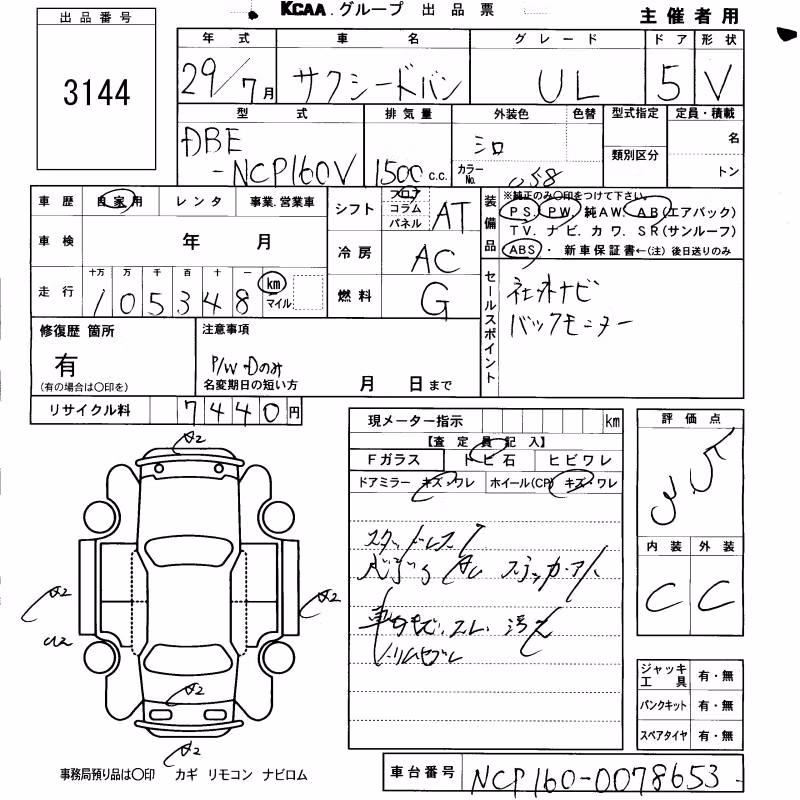 KCAA.グループ 出品票
主催者用
出品番号
3144
年式 車名 グレード ドア 形状
29/7月 サクシードバン UL 5 V
型式 排気量 外装色 色替 型式指定 定員・積載
DBE
-NCP160V 1500 c.c. シロ 名
類別区分
カラーNo. 058 トン
車歴 自家用 レンタ 事業.営業車
シフト フロア コラム パネル AT
車検 年 月
冷房 AC
走行 十万 万 千 百 十 一 km マイル
105348
燃料 G
装備品 ※純正のみ○印をつけて下さい。
PS. PW. 純AW. AB(エアバック)
TV. ナビ. カワ. SR(サンルーフ)
ABS・ 新車保証書←(注) 後日送りのみ
セールスポイント
社外ナビ
バックモニター
修復歴 箇所
有
(有の場合は○印を)
注意事項
P/W・Dのみ
名変期日の短い方 月 日まで
リサイクル料 7440円
現メーター指示 km
【査定員記入】
Fガラス トビ石 ヒビワレ
ドアミラー キズ・ワレ ホイール(CP) キズ・ワレ
スタッドレス
車内
評価点
3.5
内装 外装
C C
A2
A2
A2
A2
A2
ジャッキ工具 有・無
パンクキット 有・無
スペアタイヤ 有・無
事務局預り品は○印 カギ リモコン ナビロム
車台番号 NCP160-0078653